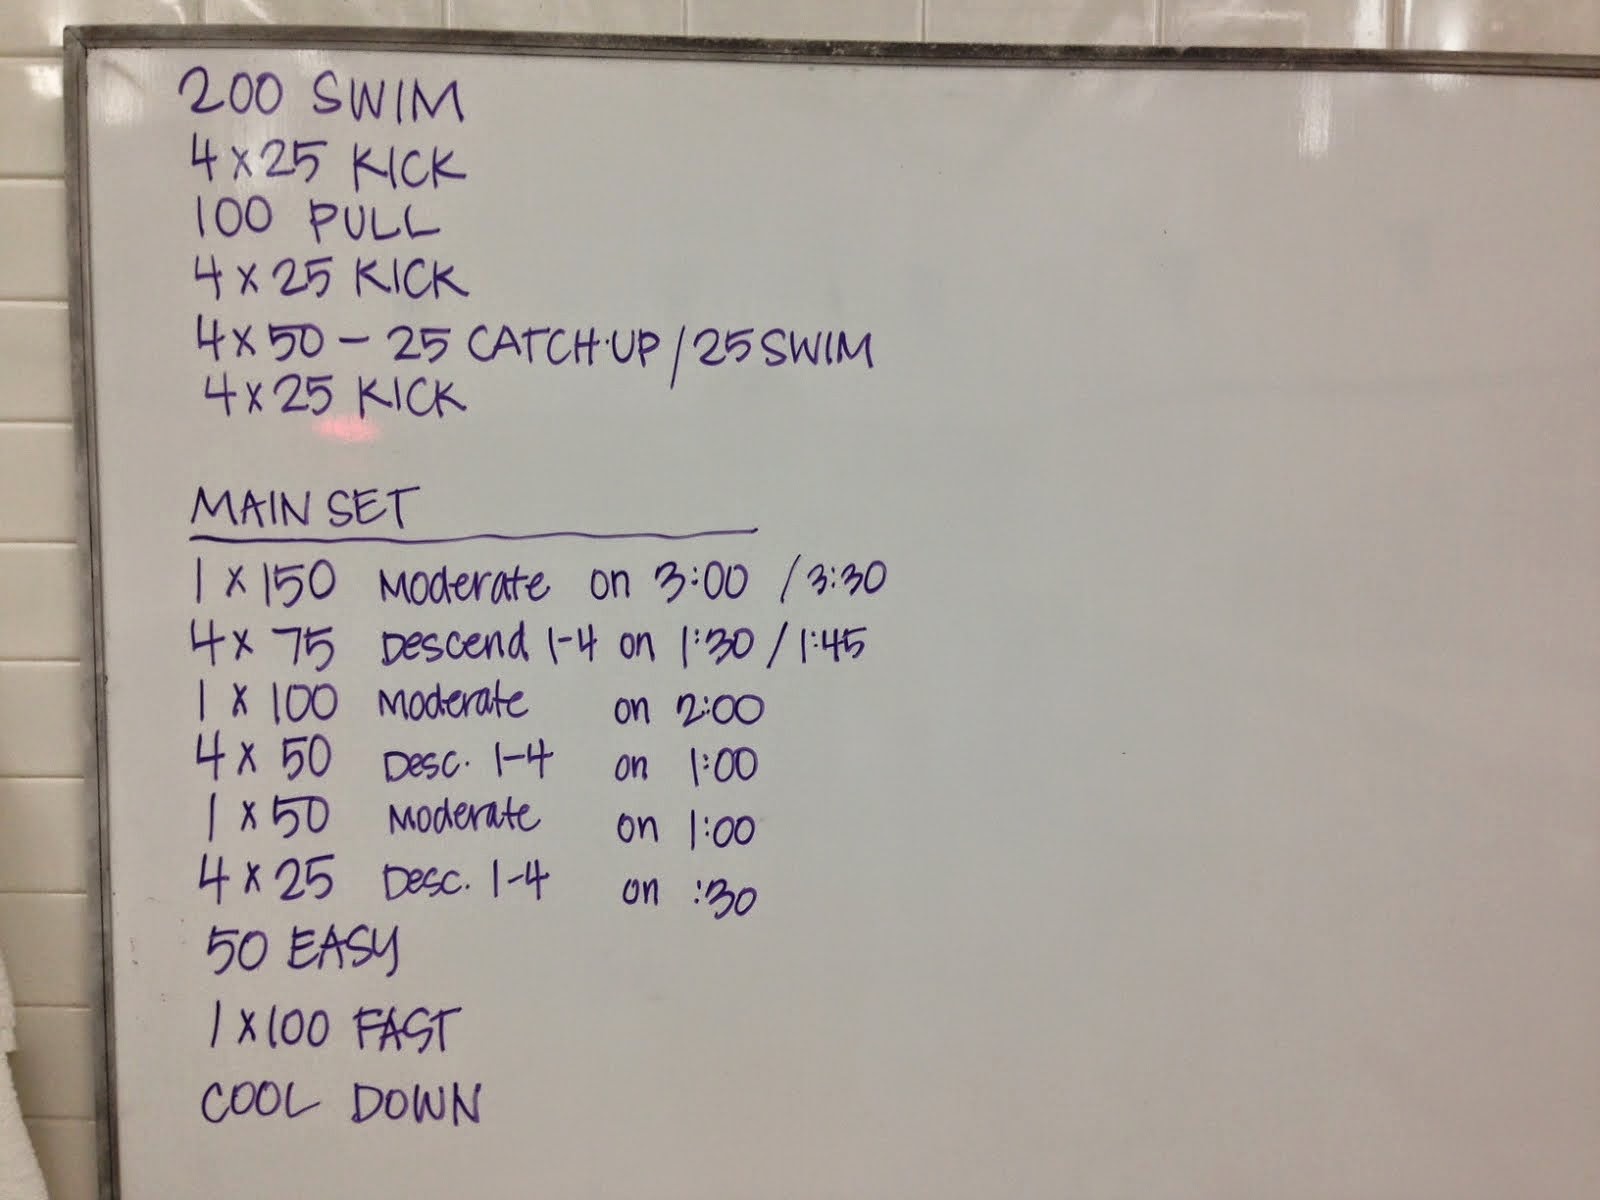 200 SWIM
4 x 25 KICK
100 PULL
4 x 25 KICK
4 x 50 – 25 CATCH·UP / 25 SWIM
4 x 25 KICK
MAIN SET
1 x 150 Moderate on 3:00 / 3:30
4 x 75 Descend 1-4 on 1:30 / 1:45
1 x 100 Moderate on 2:00
4 x 50 Desc. 1-4 on 1:00
1 x 50 Moderate on 1:00
4 x 25 Desc. 1-4 on :30
50 EASY
1 x 100 FAST
COOL DOWN